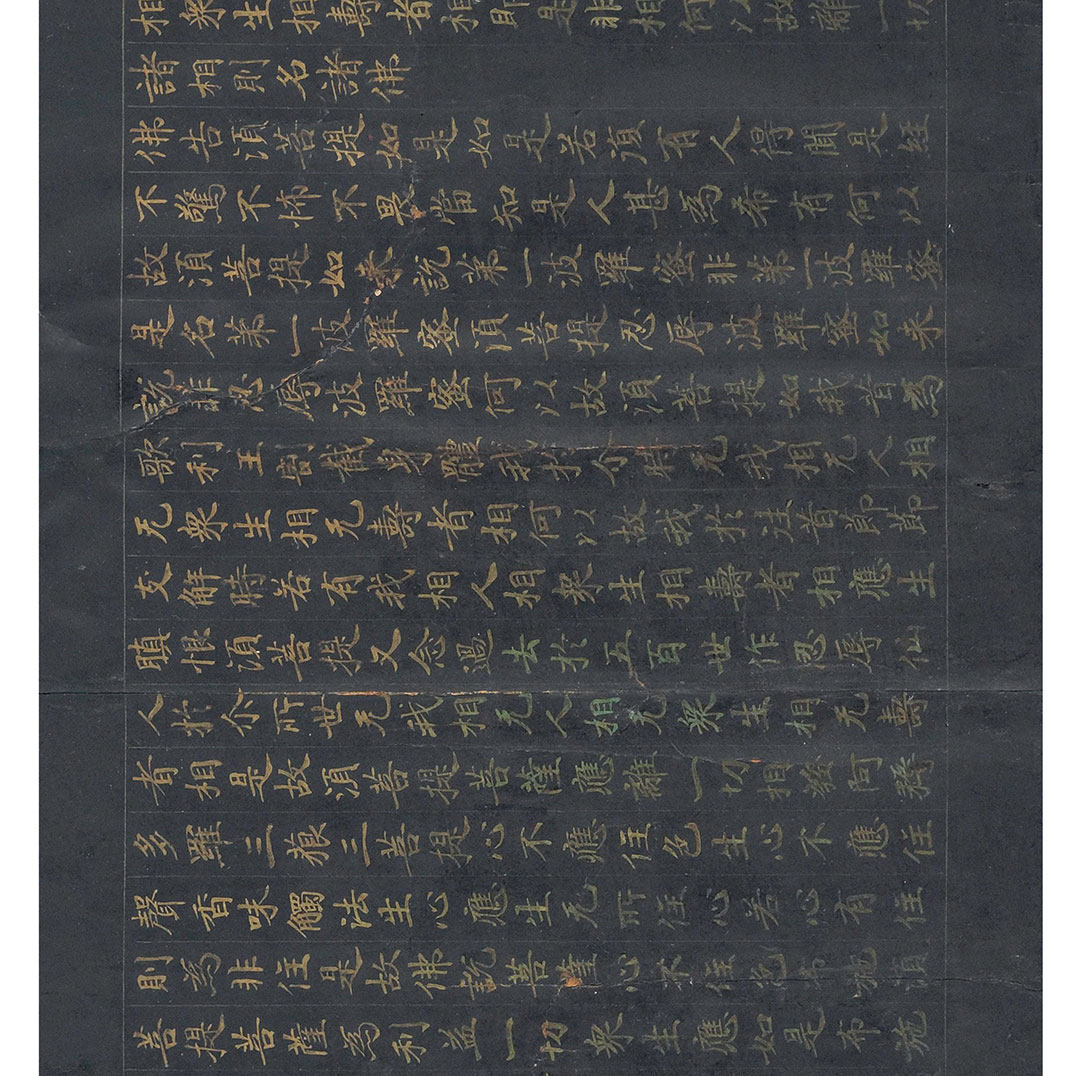 相衆生相壽者相即是非相何以故離一切
諸相則名諸佛
佛告須菩提如是如是若復有人得聞是經
不驚不怖不畏當知是人甚爲希有何以
故須菩提如來說第一波羅蜜非第一波羅蜜
是名第一波羅蜜須菩提忍辱波羅蜜如來
說非忍辱波羅蜜何以故須菩提如我昔爲
歌利王割截身體我於尒時无我相无人相
无衆生相无壽者相何以故我於往昔節節
支解時若有我相人相衆生相壽者相應生
瞋恨須菩提又念過去於五百世作忍辱仙
人於尒所世无我相无人相无衆生相无壽
者相是故須菩提菩薩應離一切相發阿耨
多羅三藐三菩提心不應住色生心不應住
聲香味觸法生心應生无所住心若心有住
則爲非住是故佛說菩薩心不住色布施須
菩提菩薩爲利益一切衆生應如是布施